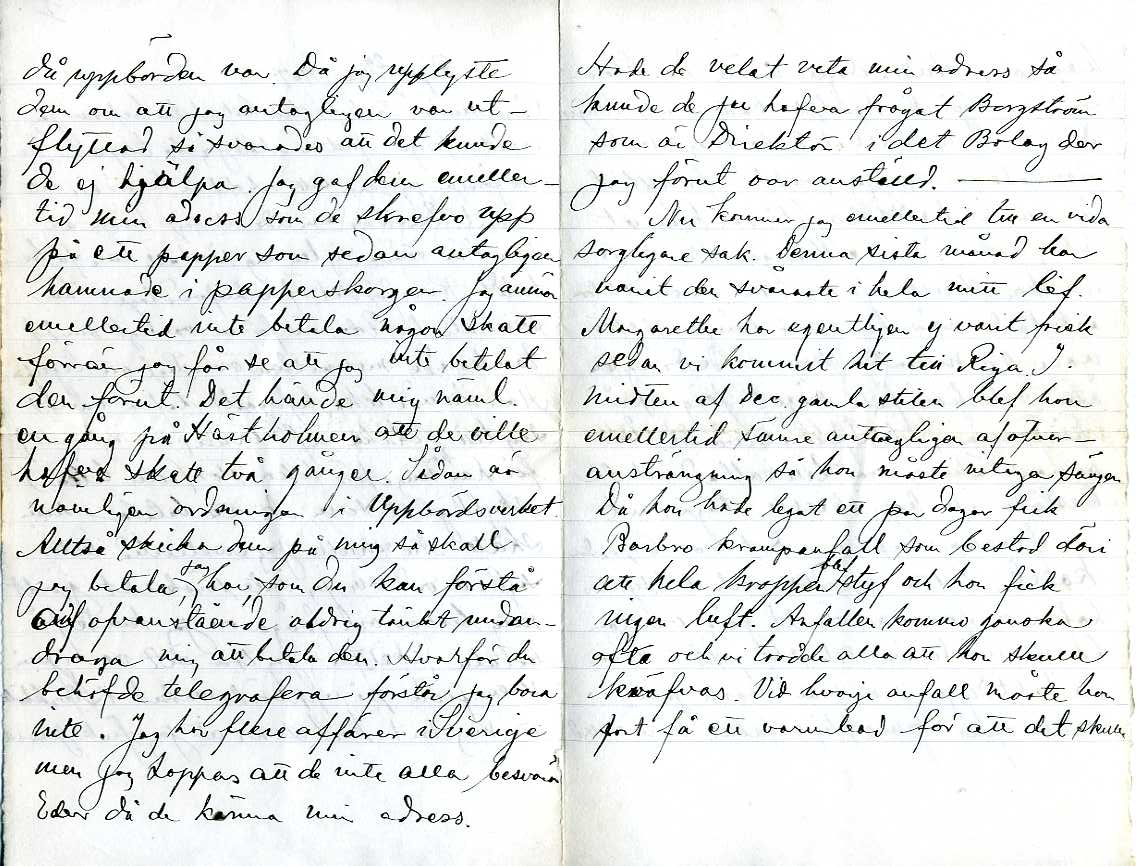 då uppbörden var. Då jag upplyste
dem om att jag antagligen var ut-
flyttad så svarades att det kunde
de ej hjälpa. Jag gaf dem emeller-
tid min adress som de skrefvo upp
på ett papper som sedan antagligen
hamnade i papperskorgen. Jag ämnar
emellertid inte betala någon skatt
förrän jag får se att jag inte betalat
den förut. Det hände mig näml.
en gång på Hästholmen att de ville
hafva skatt två gånger. Sådan är
nämligen ordningen i Uppbördsverket.
Alltså skicka dem på mig så skall
jag betala, jag har, som du kan förstå
af ofvanstående aldrig tänkt undan-
draga mig att betala den. Hvarför du
behöfde telegrafera förstår jag bara
inte. Jag har flere affärer i Sverige
men jag hoppas att de inte alla besvära
Eder då de känna min adress.
Hade de velat veta min adress så
kunde de ju hafva frågat Borgström
som är Direktör i det Bolag der
jag förut var anställd.
Nu kommer jag emellertid till en vida
sorgligare sak. Denna sista månad har
varit den svåraste i hela mitt lif.
Margarethe har egentligen ej varit frisk
sedan vi kommit hit till Riga. I
midten af Dec. gamla stilen blef hon
emellertid sämre antagligen af öfver-
ansträngning så hon måste intaga sängen
Då hon hade legat ett par dagar fick
Barbro krampanfall som bestod däri
att hela kroppen blef styf och hon fick
ingen luft. Anfallen kommo ganska
ofta och vi trodde alla att hon skulle
kväfvas. Vid hvarje anfall måste hon
fort få ett varmbad för att det skulle